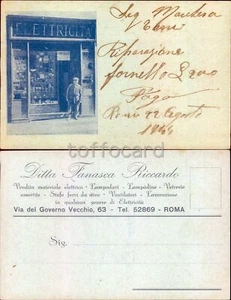 ELETTRICITÀ
Sig Marchesa
Riparazione
fornello L 200
Pago
Roma 22 Agosto
1944
toffocard
Ditta Tanasca Riccardo
Vendita materiale elettrico - Lampadari - Lampadine - Vetrerie
assortite - Stufe ferri da stiro - Ventilatori - Lavorazione
in qualsiasi genere di Elettricità
Via del Governo Vecchio, 63 - Tel. 52869 - ROMA
Sig.